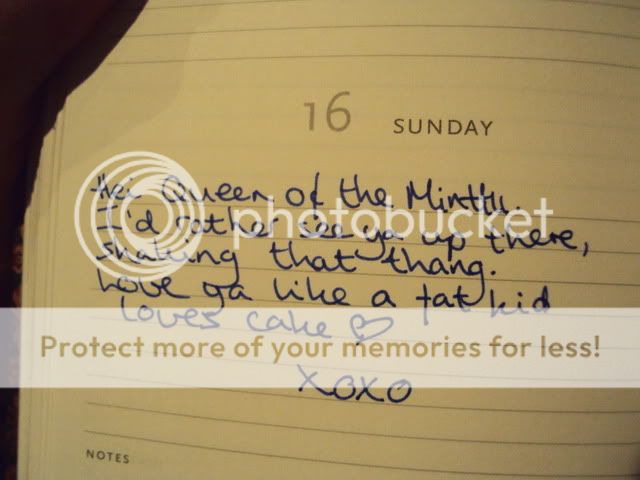 16 SUNDAY
Hei Queen of the
I'd rather see ya up there,
shaking that thang.
Love ya like a fat kid
loves cake ♡
xoxo
NOTES
photobucket
Protect more of your memories for less!